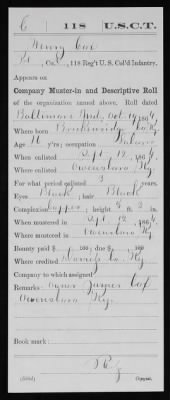 C | 118 | U.S.C.T.
Henry Cox
Pvt, Co. , 118 Reg't U. S. Col'd Infantry.
Appears on
Company Muster-in and Descriptive Roll
of the organization named above. Roll dated
Baltimore Md, Oct 19, 1864
Where born Breckinridge Co Ky
Age y'rs; occupation Laborer
When enlisted Sept 12, 1864
Where enlisted Owensboro Ky
For what period enlisted 3 years.
Eyes Black; hair Black
Complexion Copper; height ft. in.
When mustered in Sept 12, 1864
Where mustered in Owensboro Ky
Bounty paid $ 100; due $ 100
Where credited Daviess Co. Ky
Company to which assigned
Remarks: Owner James Cox
Owensboro Ky.
Book mark:
(339d) Copyist.